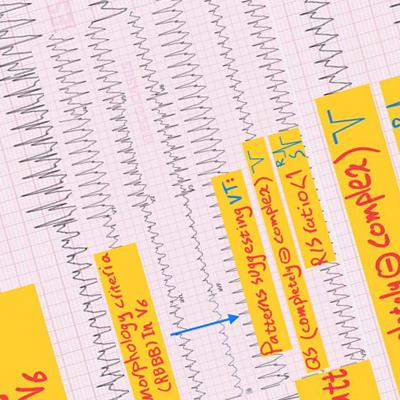 V6
Morphology criteria
(RBBB) In V6
Patterns suggesting VT:
QS (completely ⊖ complex)
R/S ratio <1 R S
att
letely ⊖ complex)
R